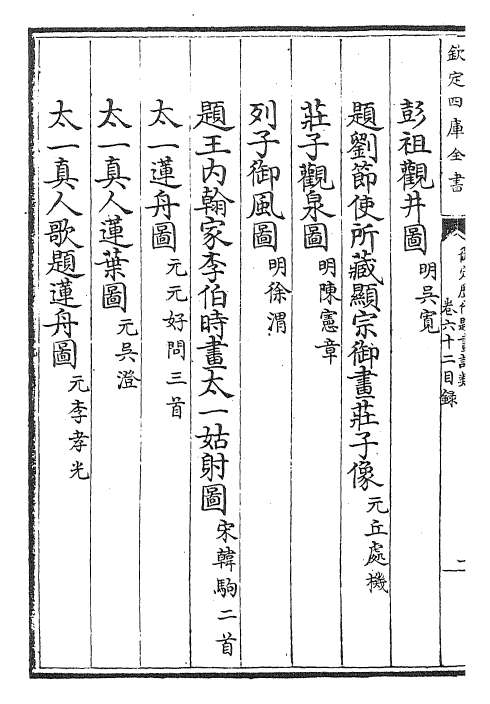 欽定四庫全書
御定歷代題畫詩類
卷六十二目録
二
彭祖觀井圖 明吳寬
題劉節使所藏顯宗御畫莊子像 元丘處機
莊子觀泉圖 明陳憲章
列子御風圖 明徐渭
題王內翰家李伯時畫太一姑射圖 宋韓駒二首
太一蓮舟圖 元元好問三首
太一真人蓮葉圖 元吳澄
太一真人歌題蓮舟圖 元李孝光